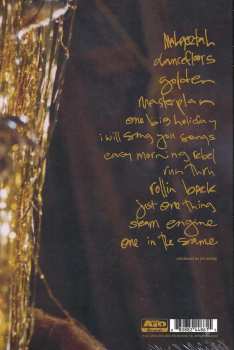 Mahgeetah
dancefloors
golden
masterplan
one big holiday
i will sing you songs
easy morning rebel
run thru
rollin back
just one thing
steam engine
one in the same
ATO